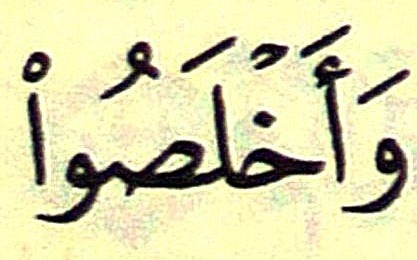 وَأَخْلَصُواْ